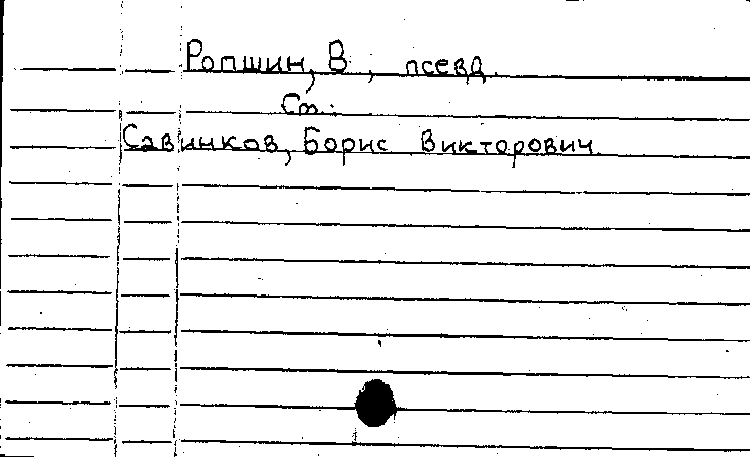 Ропшин, В., псевд.
См.:
Савинков, Борис Викторович.